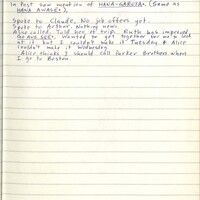 In Post saw mention of HANA-GARUTA. (Same as
HANA AWASE).
Spoke to Claude. No job offers yet.
Spoke to Arthur. Nothing new.
Alice called. Told her of trip. Ruth has improved
GO AND SEE. Wanted to get together for me to look
at it but I couldn't make it Tuesday & Alice
couldn't make it Wednesday.
Alice thinks I should call Parker Brothers when
I go to Boston.